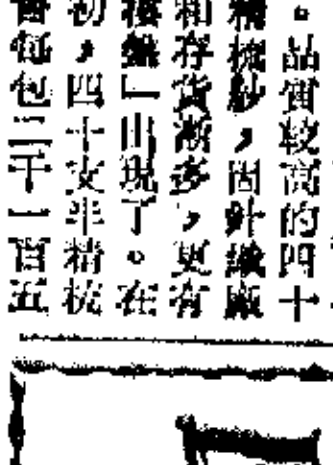 。品質較高的四十
精梳紗，因針織廠
和存貨漸多，更有
樓盤」出現了。在
初，四十支半精梳
會每包二千一百五